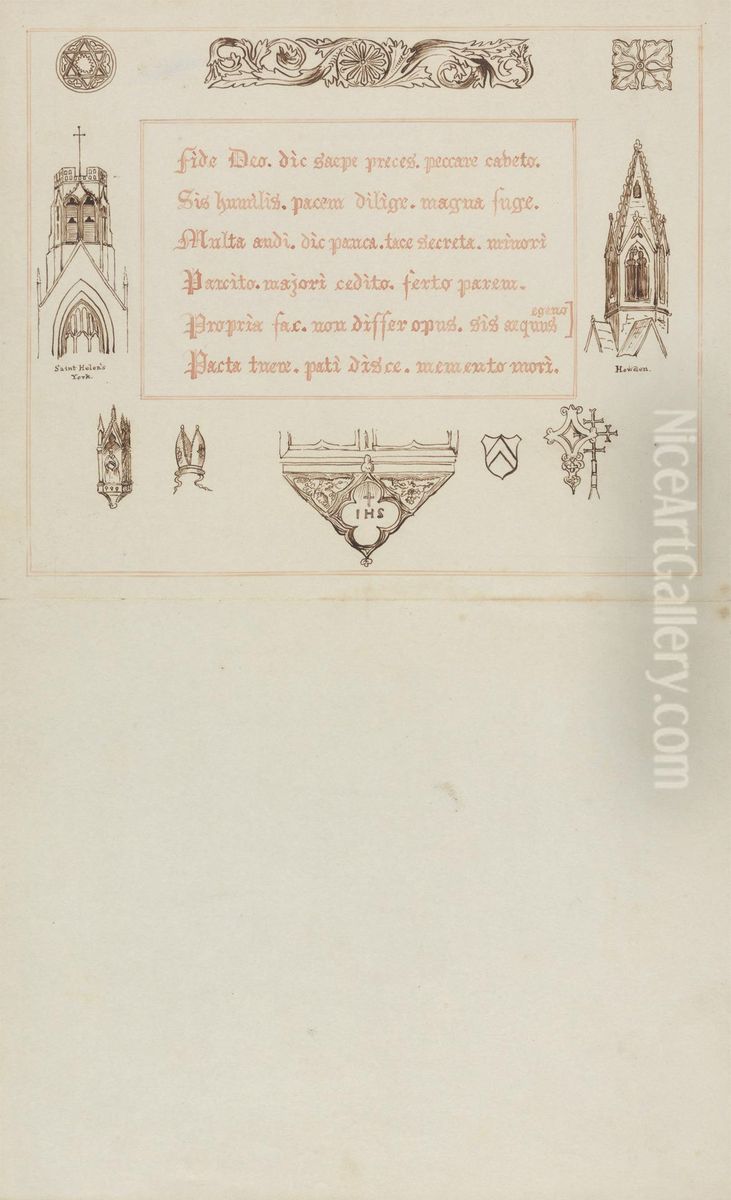 Fide Deo. dic saepe preces. peccare caveto.
Sis humilis. pacem dilige. magna fuge.
Multa audi. dic pauca. tace secreta. minori
Parcito. majori cedito. ferto parem.
egeno]
Propria fac. non differ opus. sis æquus
Pacta tuere. pati disce. memento mori.
Saint Helen's
York.
Howden.
IHS
NiceArtGallery.com